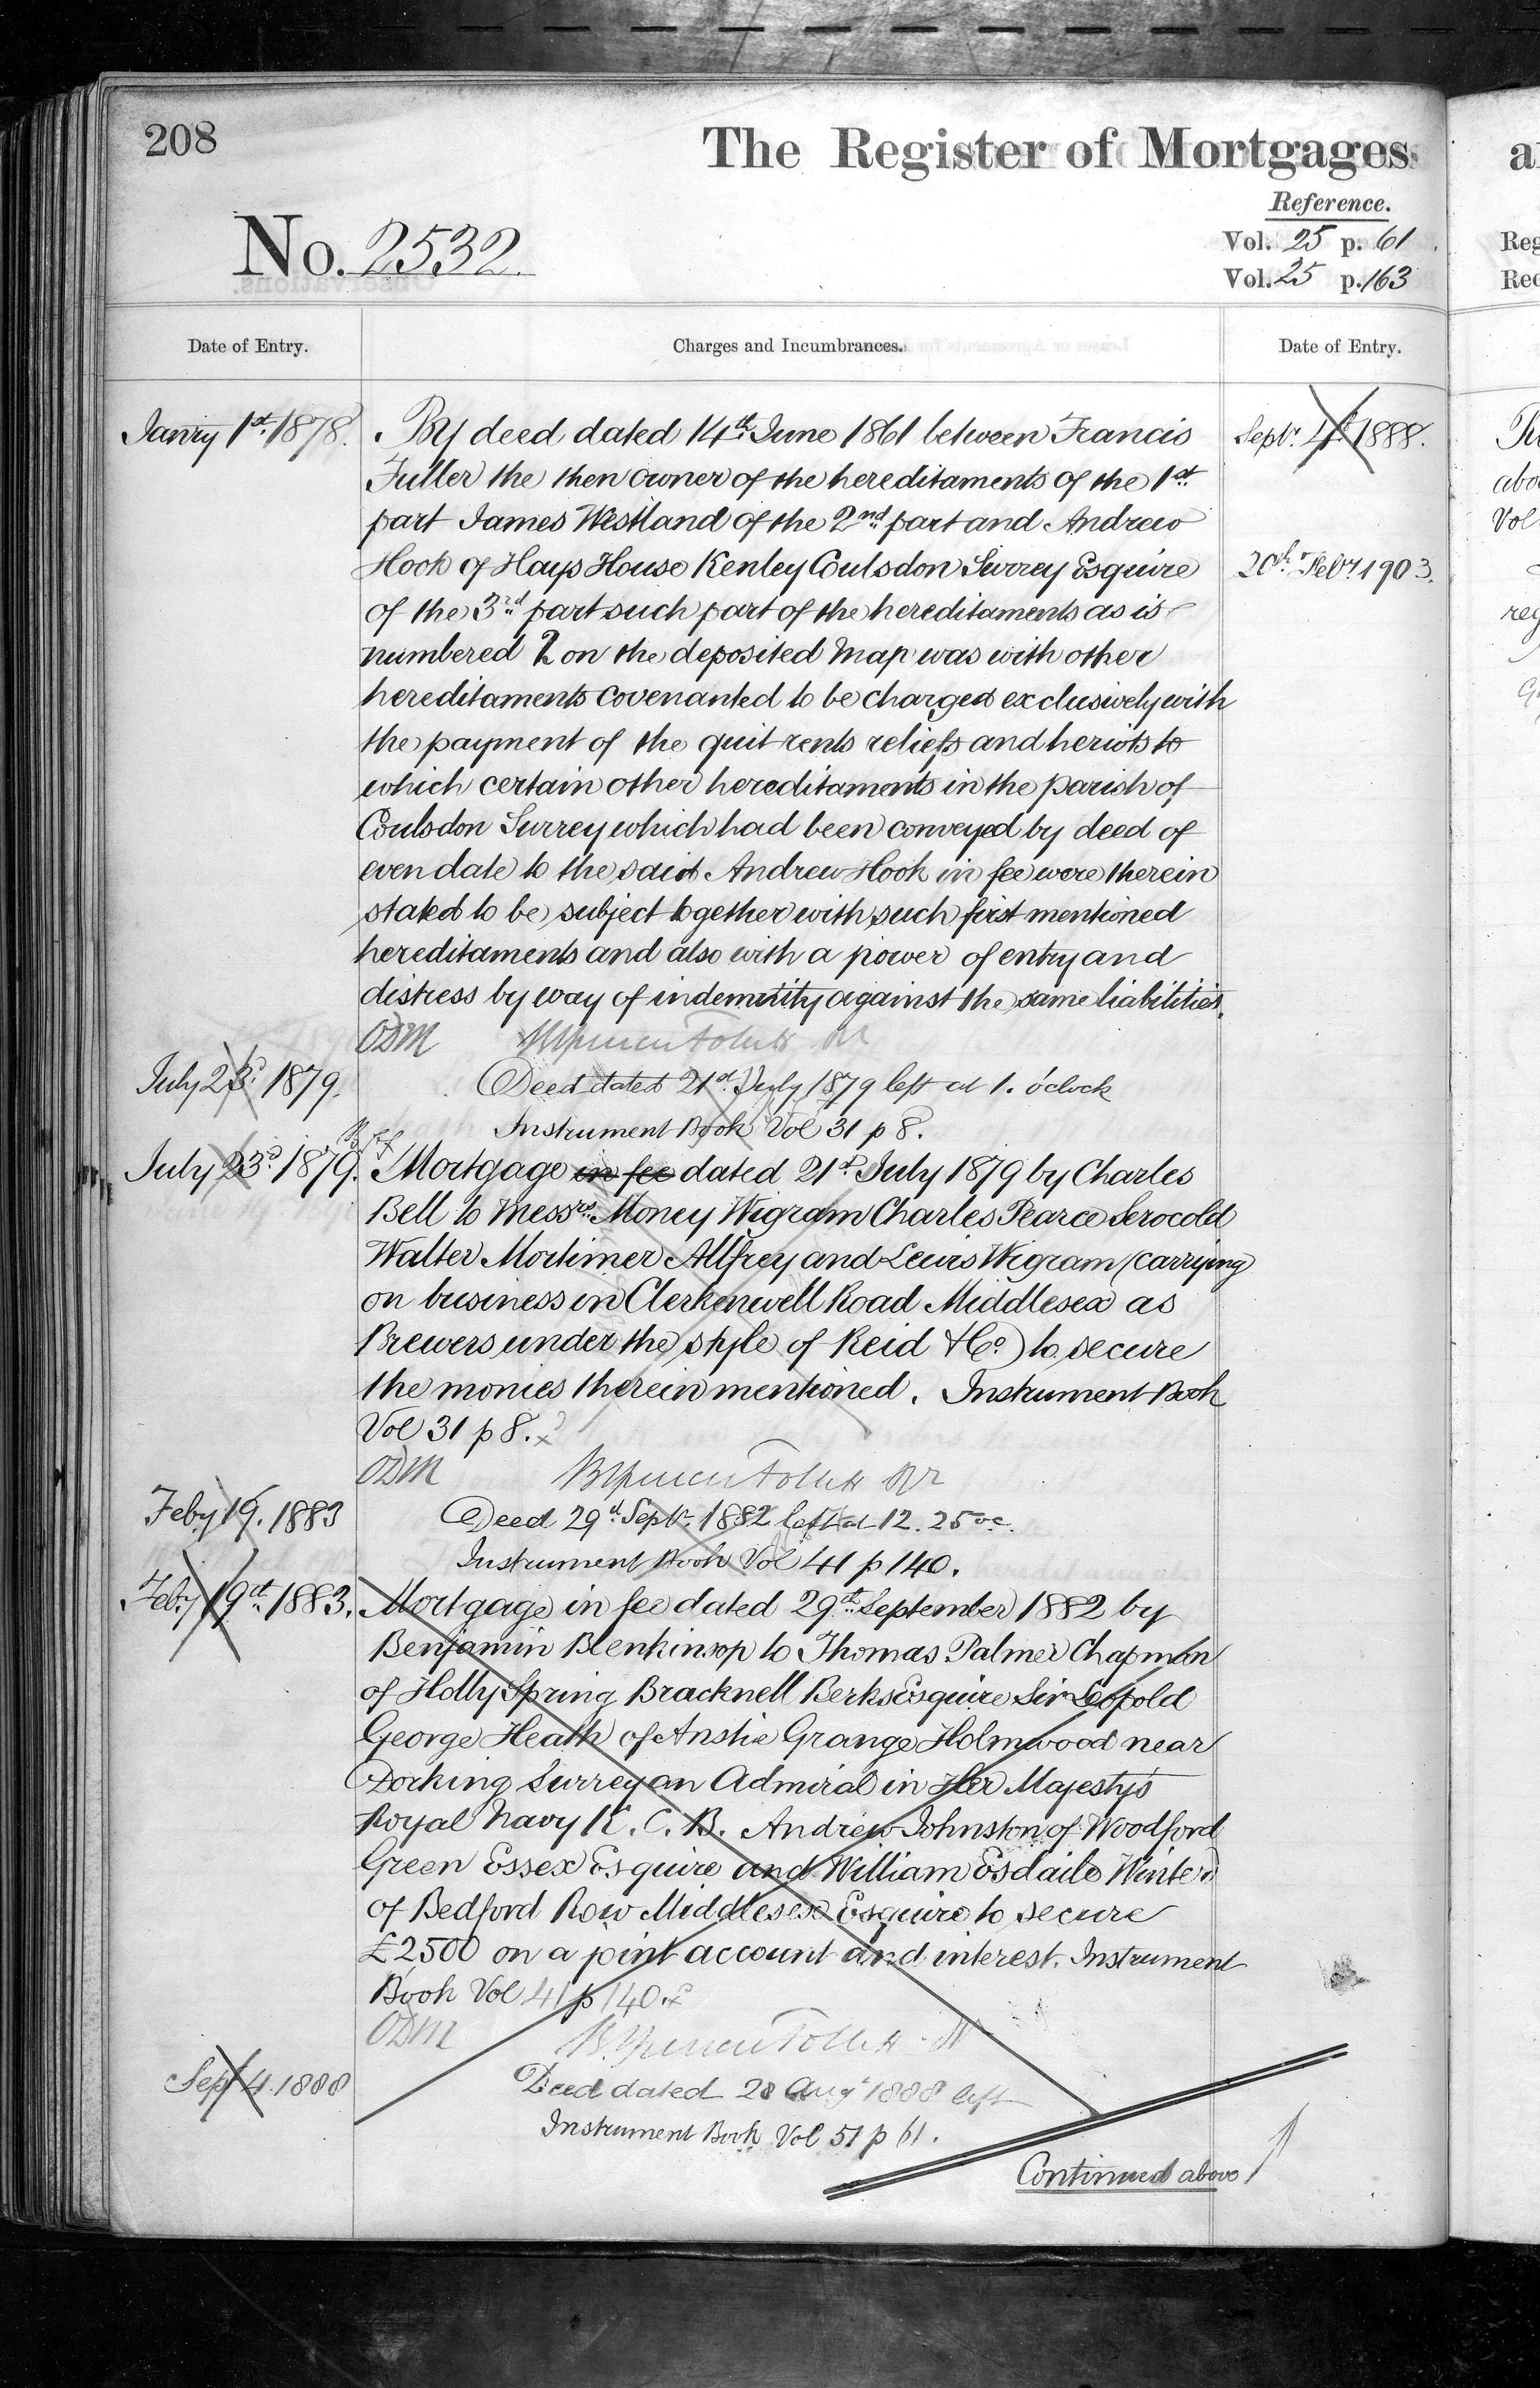 208
The Register of Mortgages
Reference.
No. 2532.
Vol. 25 p. 61
Vol. 25 p. 163
Date of Entry.
Charges and Incumbrances.
Date of Entry.
Janry 1st. 1878.
By deed dated 14th. June 1861 between Francis
Fuller the then owner of the hereditaments of the 1st.
part James Westland of the 2nd. part and Andrew
Hook of Hays House Kenley Coulsdon Surrey Esquire
of the 3rd. part such part of the hereditaments as is
numbered 2 on the deposited Map was with other
hereditaments covenanted to be charged exclusively with
the payment of the quit rents reliefs and heriots to
which certain other hereditaments in the parish of
Coulsdon Surrey which had been conveyed by deed of
even date to the said Andrew Hook in fee were therein
stated to be subject together with such first mentioned
hereditaments and also with a power of entry and
distress by way of indemnity against the same liabilities.
ODM
July 23d. 1879.
Deed dated 21st. July 1879 left at 1. o'clock
Instrument Book Vol 31 p 8.
July 23d. 1879.
Mortgage in fee dated 21st. July 1879 by Charles
Bell to Messrs. Money Wigram Charles Pearce Serocold
Walter Mortimer Allfrey and Lewis Wigram (carrying
on business in Clerkenwell Road Middlesex as
Brewers under the style of Reid & Co.) to secure
the monies therein mentioned. Instrument Book
Vol 31 p 8.
ODM
Feby 19. 1883
Deed 29th. Septr. 1882 left at 12.25 oc.
Instrument Book Vol 41 p 140.
Feby 19th. 1883.
Mortgage in fee dated 29th. September 1882 by
Benjamin Blenkinsop to Thomas Palmer Chapman
of Holly Spring Bracknell Berks Esquire Sir Leopold
George Heath of Anstie Grange Holmwood near
Dorking Surrey an Admiral in Her Majesty's
Royal Navy K. C. B. Andrew Johnston of Woodford
Green Essex Esquire and William Esdaile Winter
of Bedford Row Middlesex Esquire to secure
£2500 on a joint account and interest. Instrument
Book Vol 41 p 140.
ODM
Sept 4. 1888
Deed dated 28 Aug 1888 left
Instrument Book Vol 51 p 61.
Continued above
Septr. 4th 1888.
20th Feby. 1903.